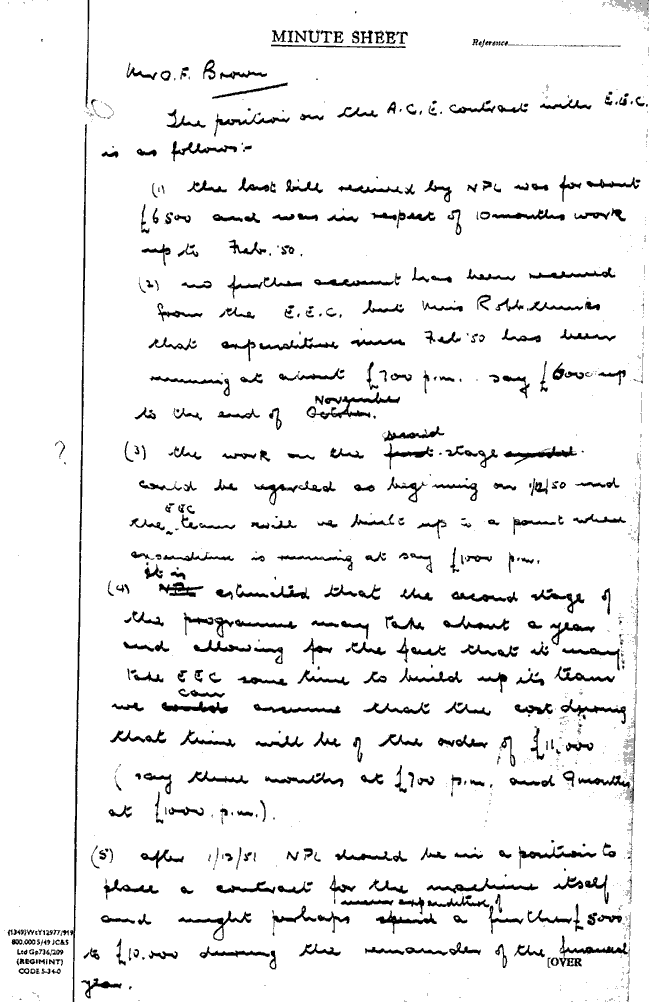 MINUTE SHEET
Reference
Mr O.F. Brown
The position on the A.C.E. contract with E.E.C.
is as follows:-
(1) the last bill received by NPL was for about
£6500 and was in respect of 10 months work
up to Feb. '50.
(2) no further account has been received
from the E.E.C. but Miss Robb thinks
that expenditure since Feb '50 has been
running at about £700 p.m. say £6000 up
November
to the end of October.
second
? (3) the work on the first stage
could be regarded as beginning on 1/12/50 and
EEC
the team will be built up to a point where
expenditure is running at say £1000 p.m.
it is
(4) NPL estimated that the second stage of
the programme may take about a year
and allowing for the fact that it may
take EEC some time to build up its team
can
we could assume that the cost during
that time will be of the order of £11,000
(say three months at £700 p.m. and 9 months
at £1000 p.m.).
(5) after 1/12/51 NPL should be in a position to
place a contract for the machine itself
incur expenditure of
and might perhaps spend a further £5000
to £10,000 during the remainder of the financial
year.
[OVER
(1349) Wt Y12977/919
800,000 5/49 JC&S
Ltd Gp736/209
(REGIMINT)
CODE 5-34-0